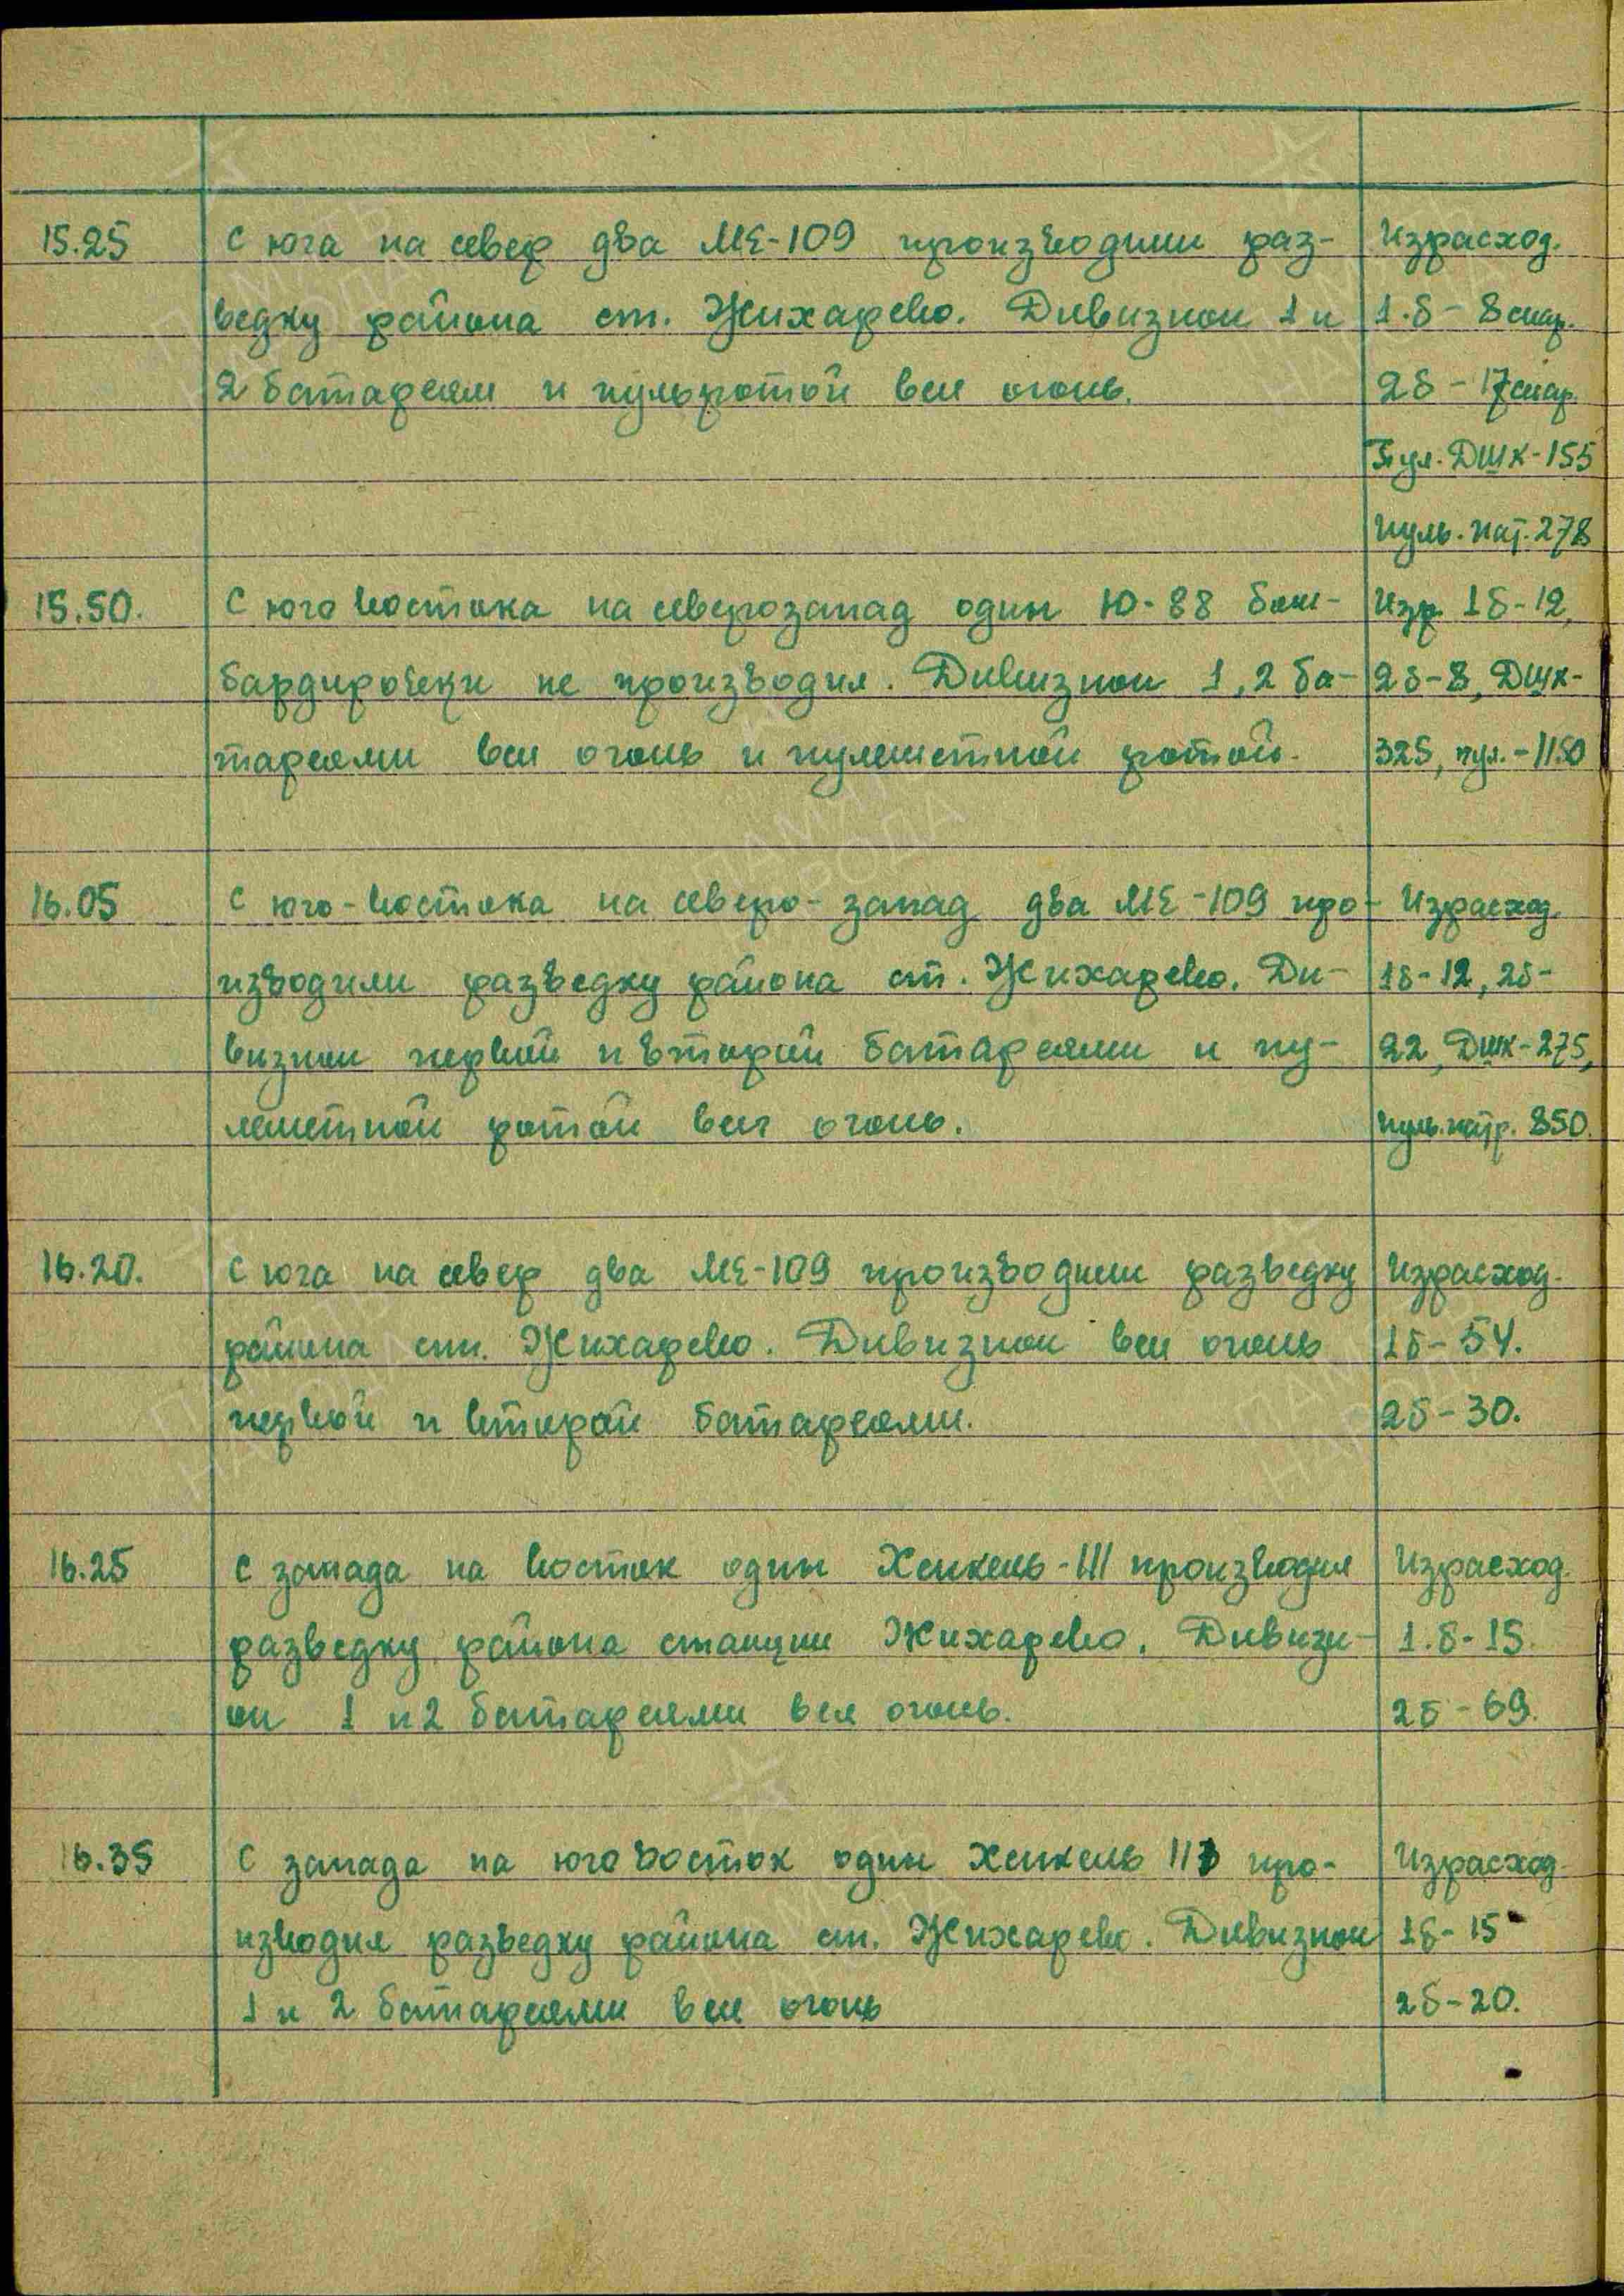 15.25 С юга на север два МЕ-109 производили раз- Израсход.
ведку района ст. Жихарево. Дивизион 1 и 1.б - 8 снар.
2 батареям и пульротой вел огонь. 2б - 17 снар.
Пул. ДШК-155
Пуль. пат. 278
15.50. С юго востока на северозапад один Ю-88 бом- Изр. 1б-12,
бардировки не производил. Дивизион 1, 2 ба- 2б-8, ДШК-
тареями вел огонь и пулеметной ротой. 325, пул. - 1150
16.05 С юго-востока на северо-запад два МЕ-109 про- Израсход.
изводили разведку района ст. Жихарево. Ди- 1б-12, 2б-
визион первой и второй батареями и пу- 22, ДШК-275,
леметной ротой вел огонь. Пуль. патр. 850.
16.20. С юга на север два МЕ-109 производили разведку Израсход.
района ст. Жихарево. Дивизион вел огонь 1б-54.
первой и второй батареями. 2б-30.
16.25 С запада на восток один Хенкель-111 производил Израсход.
разведку района станции Жихарево. Дивизи- 1.б-15.
он 1 и 2 батареями вел огонь. 2б-69.
16.35 С запада на юго восток один Хенкель 113 про- Израсход.
изводил разведку района ст. Жихарево. Дивизион 1б-15
1 и 2 батареями вел огонь 2б-20.
ПАМЯТЬ
НАРОДА